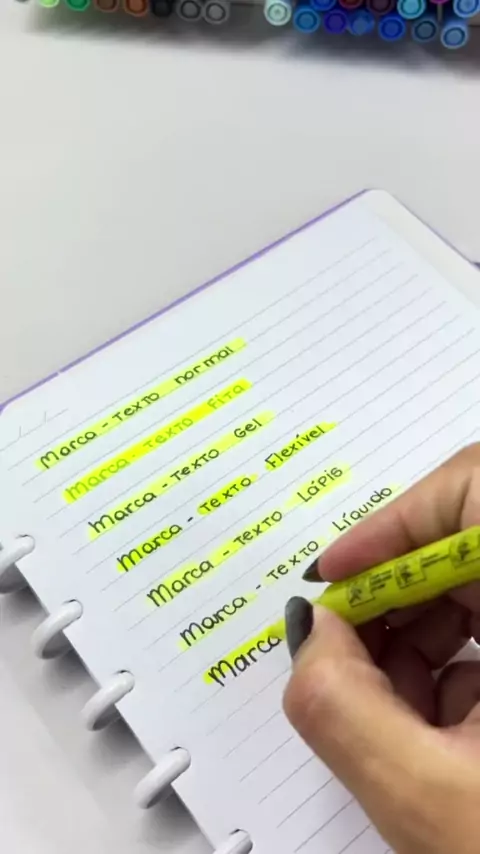 Marca-Texto normal
Marca-Texto Fita
Marca-Texto Gel
Marca-Texto Flexível
Marca-Texto Lápis
Marca-Texto Líquido
Marca